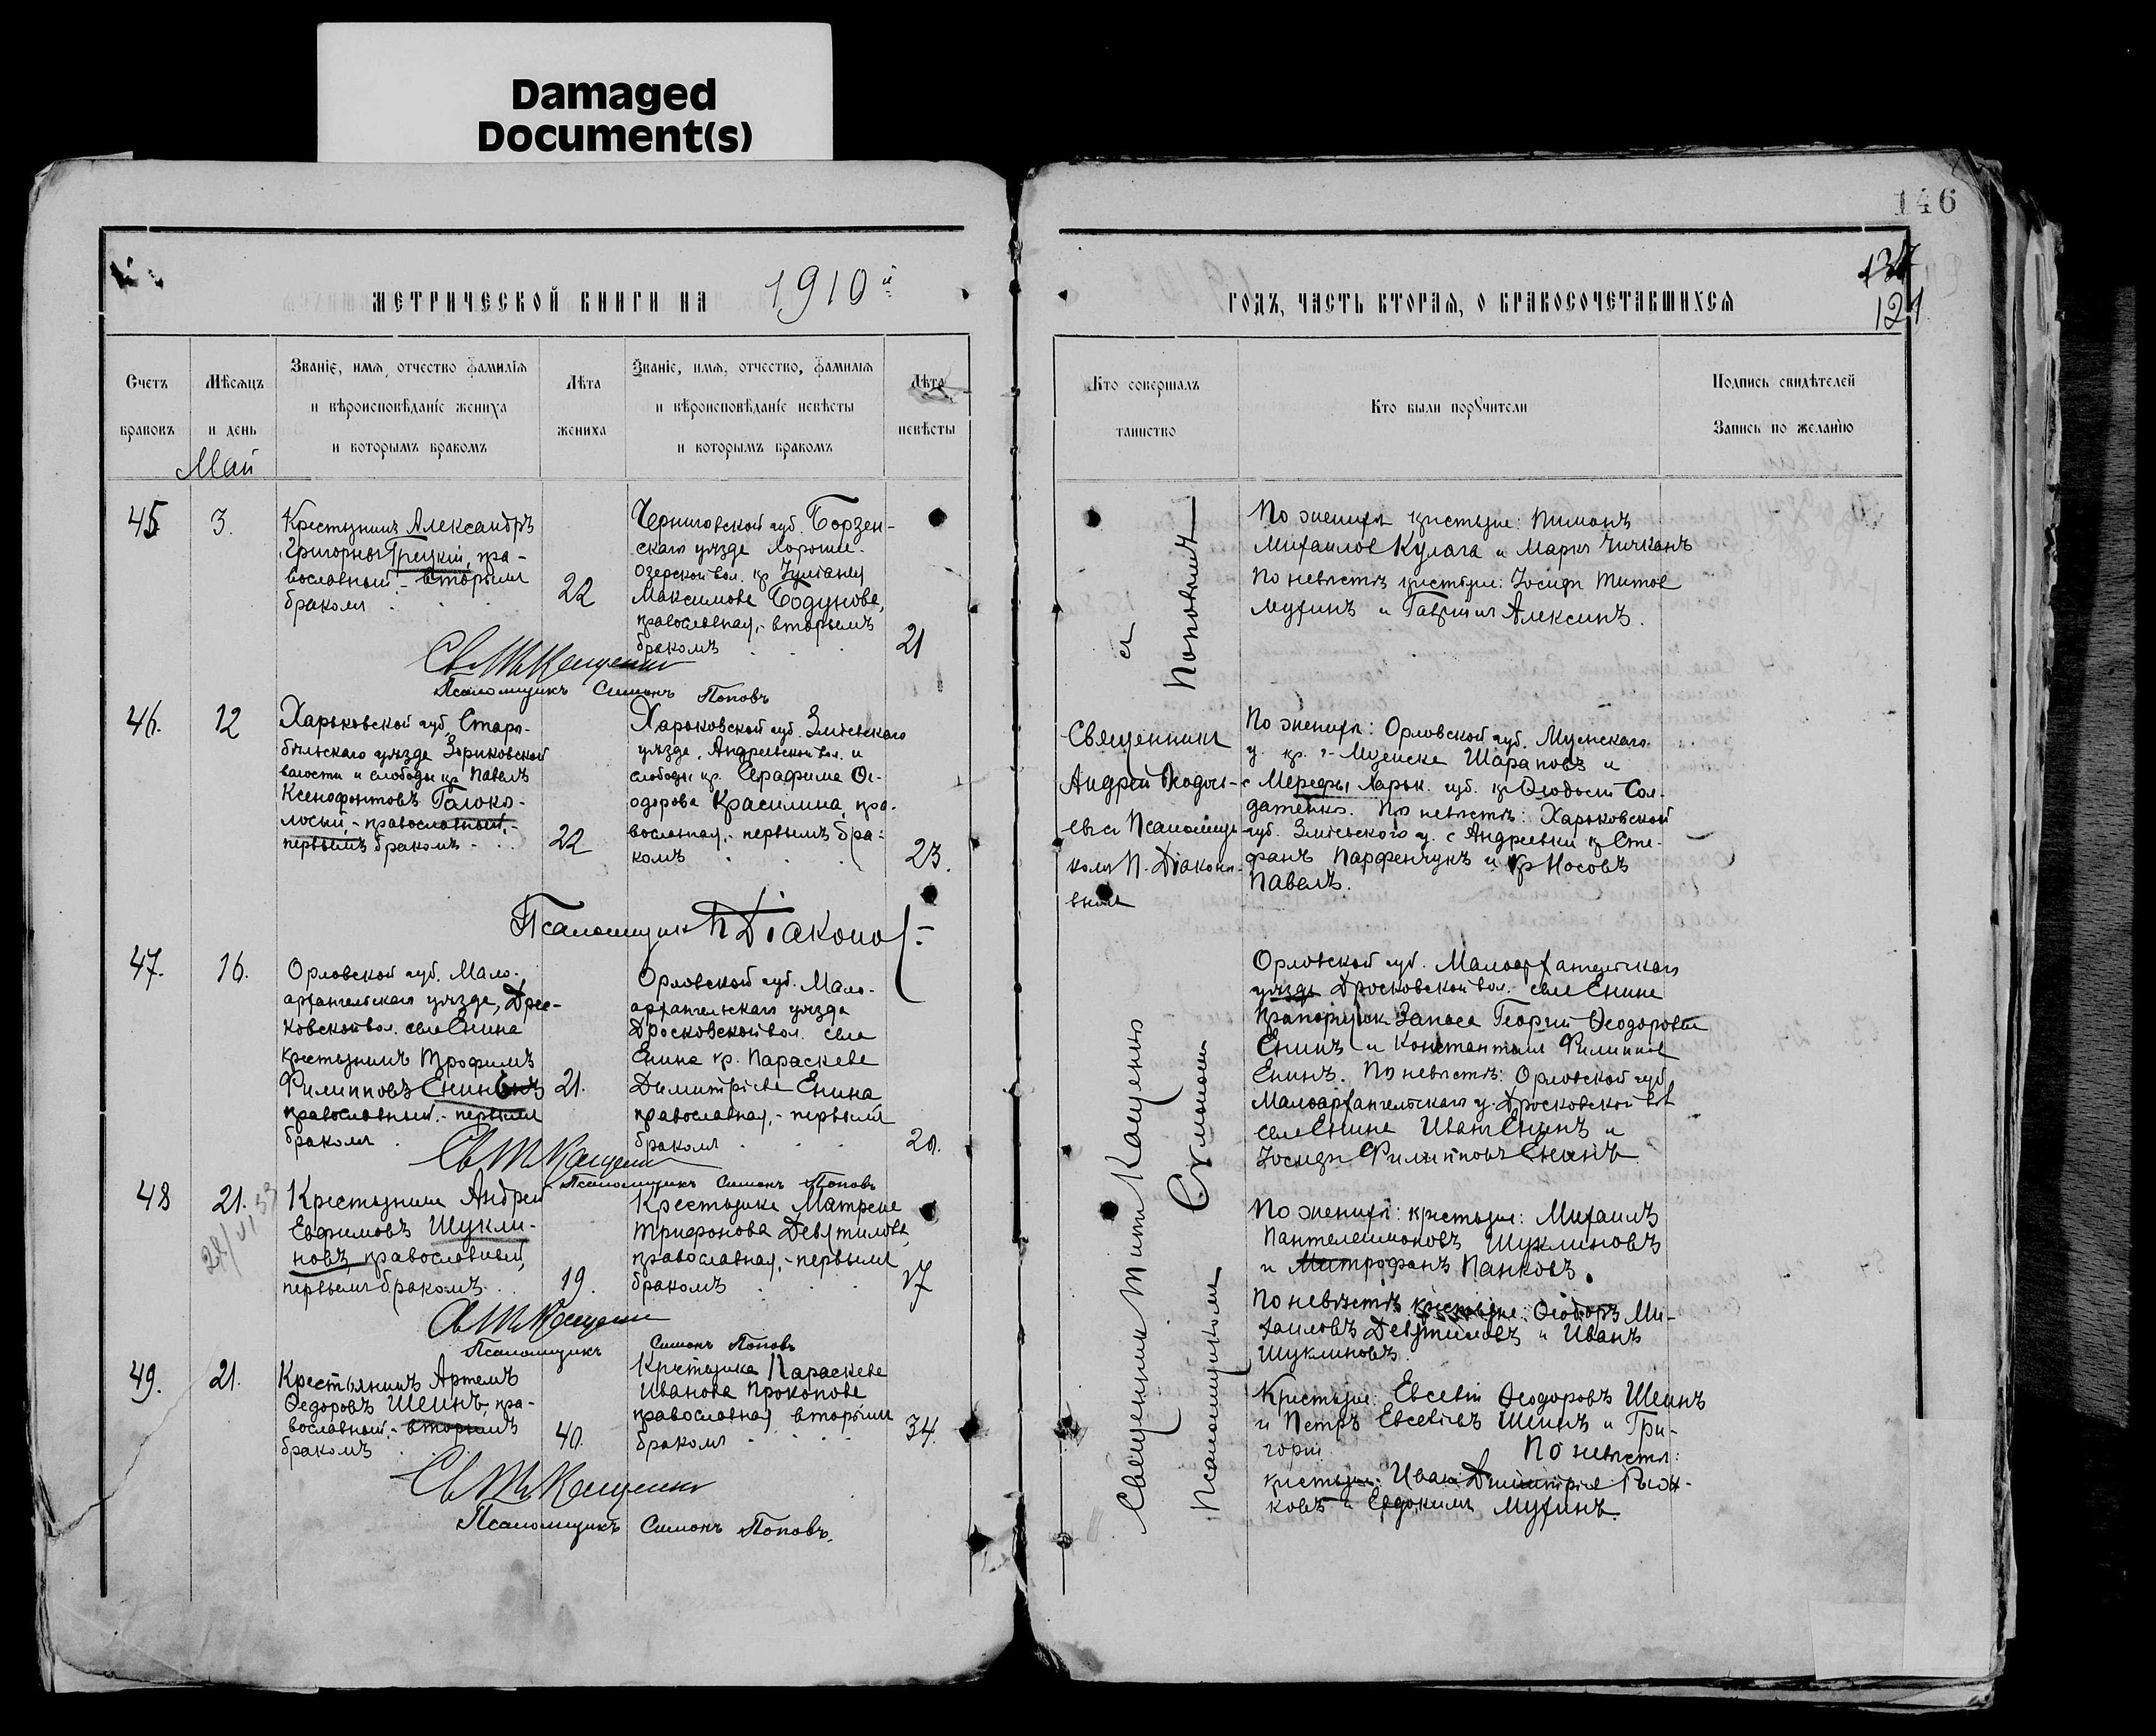 Damaged
Document(s)
146
137
121
МЕТРИЧЕСКОЙ КНИГИ НА 1910й
ГОДЪ, ЧАСТЬ ВТОРАЯ, О БРАКОСОЧЕТАВШИХСЯ
Счетъ
браковъ
Мѣсяцъ
и день
Май
Званіе, имя, отчество фамилія
и вѣроисповѣданіе жениха
и которымъ бракомъ
Лѣта
жениха
Званіе, имя, отчество, фамилія
и вѣроисповѣданіе невѣсты
и которымъ бракомъ
Лѣта
невѣсты
Кто совершалъ
таинство
Кто были порꙋчители
Подпись свидѣтелей
Запись по желанію
45
3.
Крестьянинъ Александръ
Григорьевъ Грецкій, пра-
вославный.- вторымъ
бракомъ
22
Черниговской губ. Борзен-
скаго уѣзда Хороше-
озерской вол. кр Іуліанія
Максимова Бодунова,
православная,- вторымъ
бракомъ
21
Св Т. Кащенко
Псаломщикъ Симонъ Поповъ
По женихѣ крестьяне: Пименъ
Михаиловъ Кулага и Маркъ Чичканъ
По невѣстѣ крестьяне: Іосифъ Титовъ
Мухинъ и Гавріилъ Алексинъ.
46.
12
Харьковской губ. Старо-
бѣльскаго уѣзда Зориковской
волости и слободы кр Павелъ
Ксенофонтовъ Голоко-
лосый,- православный,-
первымъ бракомъ
22
Харьковской губ. Зміевскаго
уѣзда, Андреевской вол. и
слободы кр. Серафима Ѳе-
одорова Красилина, пра-
вославная,- первымъ бра-
комъ
23.
Псаломщикъ П Діаконо
Священникъ
Андрей Ѳеодось-
евъ съ Псаломщи-
комъ П. Діаконо-
вымъ
По женихѣ: Орловской губ. Мценскаго
у. кр. г. Мценска Шараповъ и
с Мерефы Харьк. губ. кр Ѳеодосій Сол-
датенко. По невѣстѣ: Харьковской
губ. Зміевского у. с Андреевки кр Сте-
фанъ Парфенчукъ и кр Носовъ
Павелъ.
47.
16.
Орловской губ. Мало-
архангельскаго уѣзда, Дрос-
ковской вол. села Енина
крестьянинъ Трофимъ
Филипповъ Енинъ
православный.- первымъ
бракомъ
21.
Орловской губ. Мало-
архангельскаго уѣзда
Дросковской вол. села
Енина кр. Параскева
Димитріева Енина
православная,- первымъ
бракомъ
20.
Св Т. Кащенко
Псаломщикъ Симонъ Поповъ
Орловской губ. Малоархангельскаго
уѣзда Дросковской вол. села Енина
Прапорщик Запаса Георгій Ѳеодоровъ
Енинъ и Константинъ Филиппов
Енинъ. По невѣстѣ: Орловской губ
Малоархангельскаго у. Дросковской вол
села Енина Иванъ Енинъ и
Іосифъ Филипповъ Енинъ.
48
21.
Крестьянинъ Андрей
Евфимовъ Шукли-
новъ, православный,
первымъ бракомъ
19.
Крестьянка Матрена
Трифонова Девятилова,
православная,- первымъ
бракомъ
17
Св Т. Кащенко
Псаломщикъ Симонъ Поповъ
По женихѣ: крестьяне: Михаилъ
Пантелеимоновъ Шуклиновъ
и Митрофанъ Панковъ.
По невѣстѣ крестьяне: Ѳеодоръ Ми-
хаиловъ Девятиловъ и Иванъ
Шуклиновъ.
49.
21.
Крестьянинъ Артемъ
Ѳедоровъ Шеинъ, пра-
вославный.- вторымъ
бракомъ
40.
Крестьянка Параскева
Иванова Прокопова
православная вторымъ
бракомъ
34.
Св Т. Кащенко
Псаломщикъ Симонъ Поповъ.
Крестьяне: Евсевій Ѳеодоровъ Шеинъ
и Петръ Евсевіевъ Шеинъ и Гри-
горій. По невѣстѣ:
крестьяне: Иванъ Димитріев
ковъ и Евдокимъ Мухинъ.
Священникъ Титъ Кащенко съ
Псаломщикомъ Симономъ Поповымъ